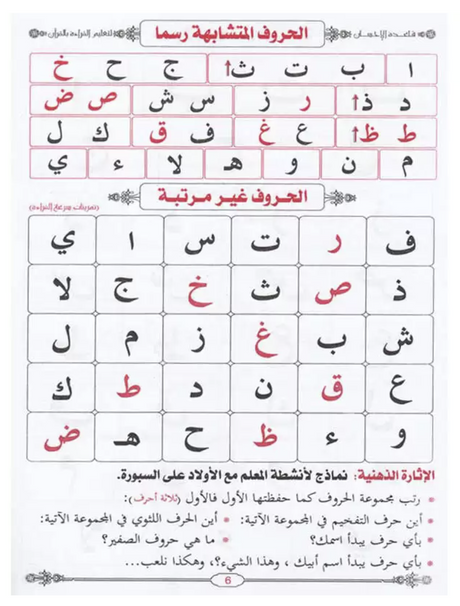 قاعدة الإحسان الحروف المتشابهة رسما لتعليم القراءة بالقرآن
ا ب ت ث↑ ج ح خ
د ذ↑ ر ز س ش ص ض
ط ظ↑ ع غ ف ق ك ل
م ن و هـ لا ء ي
الحروف غير مرتبة
ف ر ت س ا ي
ذ ص ث خ ج لا
ش ب غ ز م ل
ع ق ن د ط ك
و ء ظ ح هـ ض
الإثارة الذهنية: نماذج لأنشطة المعلم مع الأولاد على السبورة.
• رتب مجموعة الحروف كما حفظتها الأول فالأول (ثلاثة أحرف):
• أين حرف التفخيم في المجموعة الآتية: • أين الحرف اللثوي في المجموعة الآتية:
• بأي حرف يبدأ اسمك؟ • ما هي حروف الصفير؟
• بأي حرف يبدأ اسم أبيك ، وهذا الشيء؟، وهكذا نلعب...
6